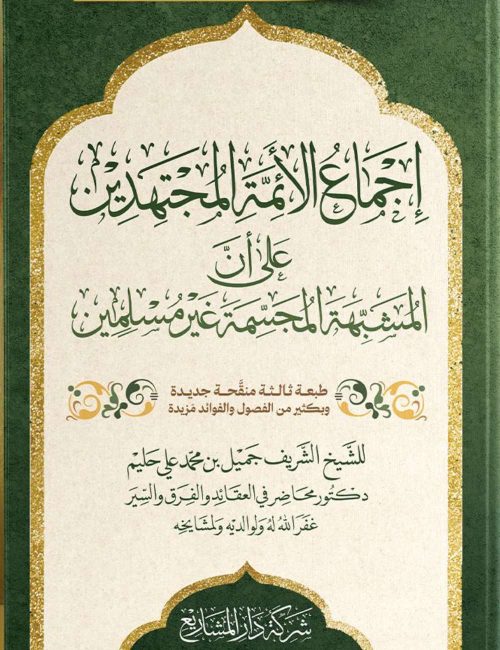 إِجْمَاعُ الأَئِمَّةِ المُجْتَهِدِيْنَ
عَلَى أَنَّ
المُشَبِّهَةَ المُجَسِّمَةَ غَيْرُ مُسْلِمِيْن
طبعـة ثـالـثـة منقَّحـة جديـدة
وبكثير من الفصول والفوائد مَزيدة
للشَّيْخِ الشَّرِيف جَمِيْل بن مُحَمَّد عَلِي حَلِيم
دكتور محاضر في العقائد والفرق والسِّيَر
غَفَرَ اللهُ لهُ ولوالديْه ولمشايخه
شركة دار المشاريع